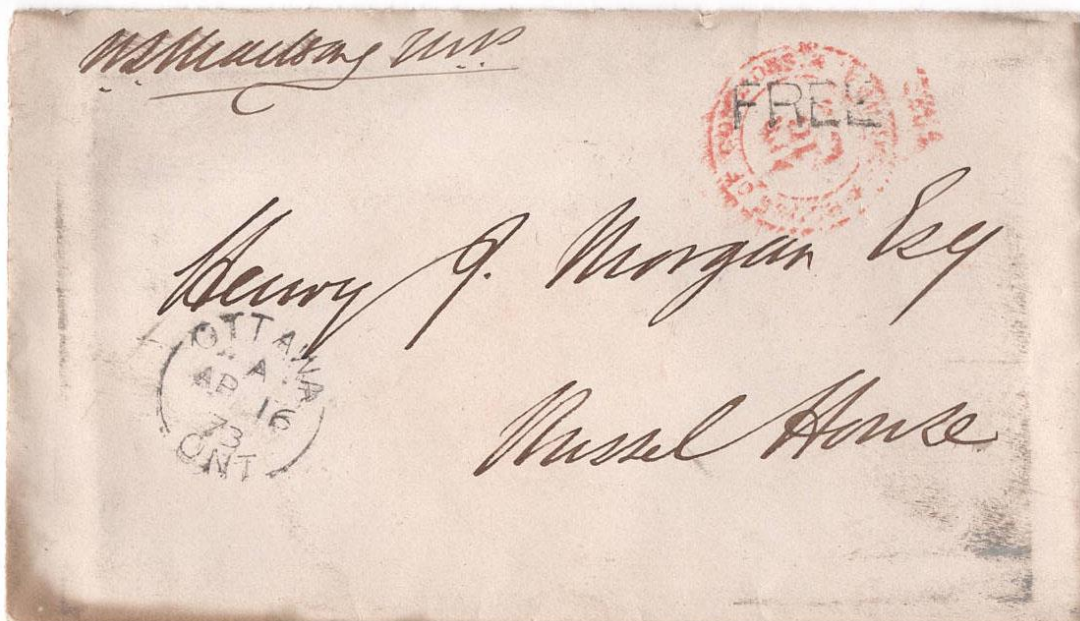 FREE
HOUSE OF COMMONS
Henry J. Morgan Esq
OTTAWA
A
AP 16
73
ONT
Russel House